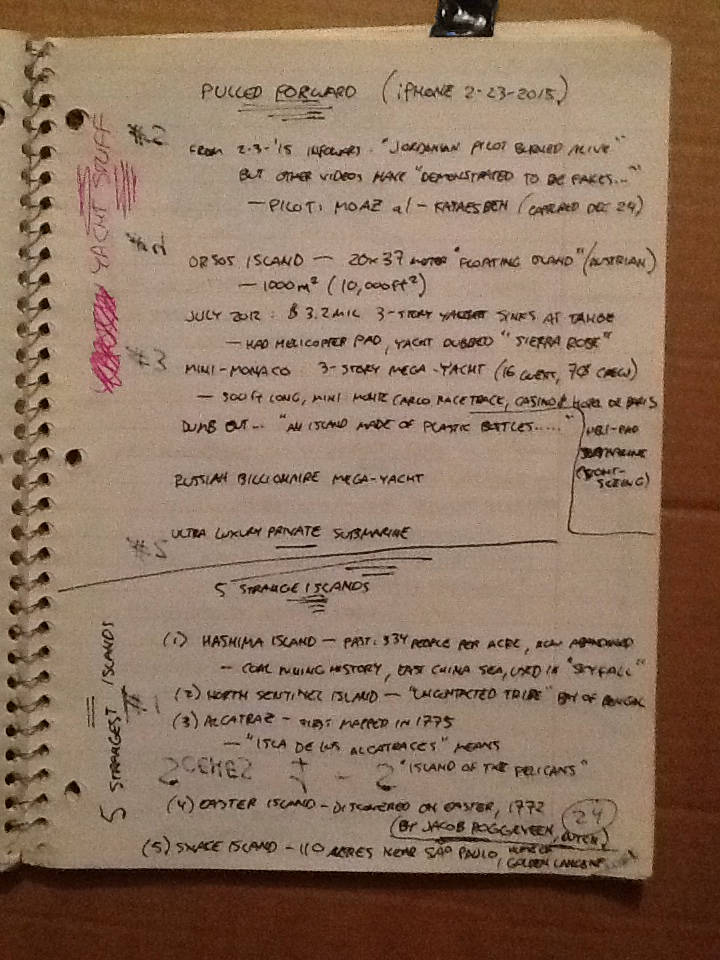 PULLED FORWARD (iPHONE 2-23-2015)
YACHT STUFF
#2
FROM 2-3-'15 INFOWARS: "JORDANIAN PILOT BURNED ALIVE"
BUT OTHER VIDEOS HAVE "DEMONSTRATED TO BE FAKES..."
— PILOT: MOAZ al-KATAESBEH (CAPTURED DEC 24)
ORSOS ISLAND — 20x37 METER "FLOATING ISLAND" (AUSTRIAN)
— 1000m² (10,000ft²)
JULY 2012: $3.2MIL 3-STORY YACHT SINKS AT TAHOE
— HAD HELICOPTER PAD, YACHT DUBBED "SIERRA ROSE"
#3
MINI-MONACO: 3-STORY MEGA-YACHT (16 GUEST, 70 CREW)
— 500 FT LONG, MINI MONTE CARLO RACETRACK, CASINO & HOTEL DE PARIS
HELI-PAD
SUBMARINE
DUMB BUT... "AN ISLAND MADE OF PLASTIC BOTTLES....."
RUSSIAN BILLIONAIRE MEGA-YACHT
#5
ULTRA LUXURY PRIVATE SUBMARINE
5 STRANGE ISLANDS
5 STRANGEST ISLANDS
#1
(1) HASHIMA ISLAND — PAST: 334 PEOPLE PER ACRE, NOW ABANDONED
— COAL MINING HISTORY, EAST CHINA SEA, USED IN "SKYFALL"
(2) NORTH SENTINEL ISLAND — "UNCONTACTED TRIBE" BAY OF BENGAL
(3) ALCATRAZ — FIRST MAPPED IN 1775
— "ISLA DE LOS ALCATRACES" MEANS
"ISLAND OF THE PELICANS"
(4) EASTER ISLAND — DISCOVERED ON EASTER, 1772
(BY JACOB ROGGEVEEN, DUTCH)
24
(5) SNAKE ISLAND — 110 ACRES NEAR SÃO PAULO, HOME OF
GOLDEN LANCEHEAD